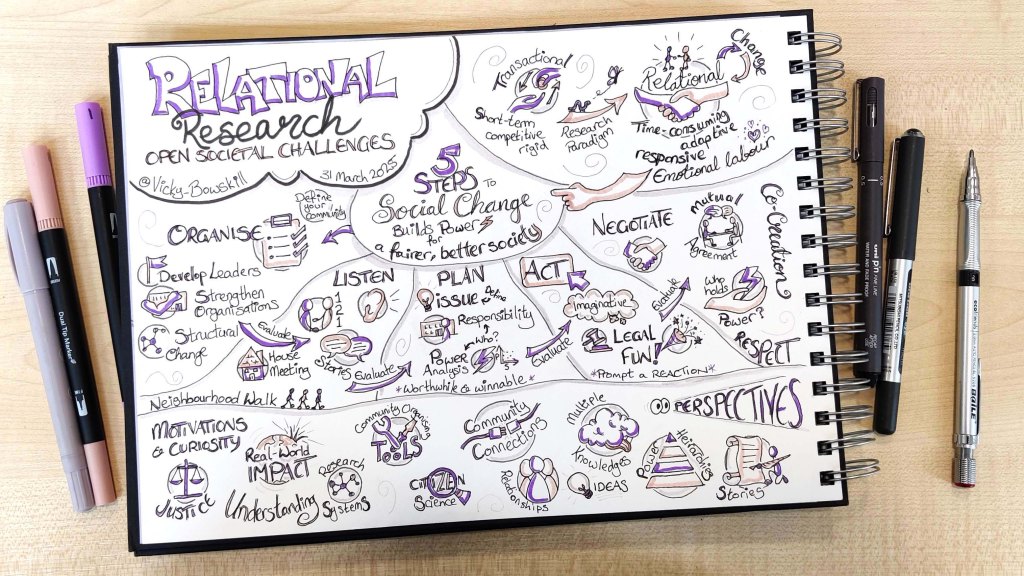 RELATIONAL
Research
OPEN SOCIETAL CHALLENGES
@Vicky-Bowskill
31 March 2025
Transactional
Short-term
competitive
rigid
Research
Paradigm
Relational
Change
Time-consuming
adaptive
responsive
Emotional labour
5
STEPS TO
Social Change
BUILDS POWER
for
a fairer, better society
Define
your
community
ORGANISE
Develop Leaders
Strengthen
Organisations
Structural
Change
Evaluate
LISTEN
1
2
1
Stories
House
Meeting
Evaluate
Neighbourhood Walk
PLAN
ISSUE
define
Responsibility
Who?
Power
Analysis
*Worthwhile & winnable*
Evaluate
ACT
Imaginative
LEGAL
FUN!
*Prompt a REACTION*
Evaluate
NEGOTIATE
Mutual
Agreement
Who
holds
Power?
RESPECT
Co-Creation
MOTIVATIONS
& CURIOSITY
JUSTICE
Real-World
IMPACT
Understanding
Research
Systems
Community Organising
TOOLS
CITIZEN
Science
Community
Connections
Relationships
Multiple
Knowledges
IDEAS
PERSPECTIVES
Power
Heirarchies
Stories
Dual Tip Marker
uni pin FINE LINE
0.5
AGILE